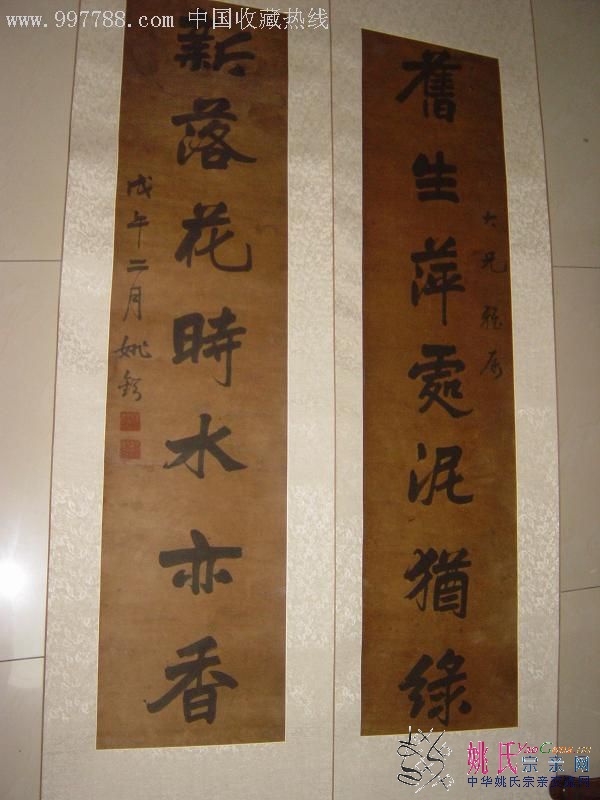 www.997788.com 中国收藏热线
舊生萍處泥猶綠
大兄雅屬
新落花時水亦香
戊午二月姚鈖
姚氏YaoC
宗亲网
中华姚氏宗亲